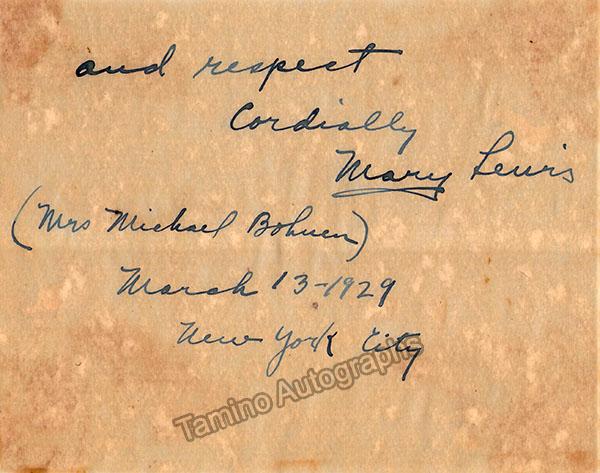 and respect
Cordially
Mary Lewis
(Mrs Michael Bohnen)
March 13-1929
New York City
Tamino Autographs